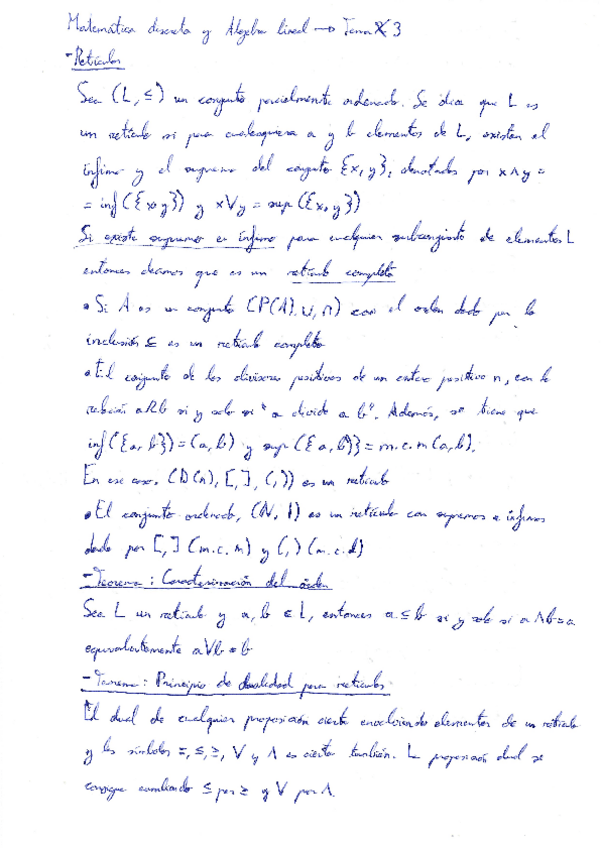 Matemática discreta y Álgebra lineal → Tema 3
- Retículos
Sea (L, ≤) un conjunto parcialmente ordenado. Se dice que L es
un retículo si para cualesquiera a y b elementos de L, existen el
ínfimo y el supremo del conjunto {x, y}; denotados por x∧y =
= inf({x, y}) y x∨y = sup({x, y})
Si existe supremo e ínfimo para cualquier subconjunto de elementos L
entonces decimos que es un retículo completo
• Si A es un conjunto (P(A), ∪, ∩) con el orden dado por la
inclusión ⊆ es un retículo completo
• El conjunto de los divisores positivos de un entero positivo n, con la
relación aRb si y solo si "a divide a b". Además, se tiene que
inf({a, b}) = (a, b) y sup({a, b)} = m.c.m(a, b).
En ese caso, (D(n), [,], (,)) es un retículo
• El conjunto ordenado, (N, |) es un retículo con supremos e ínfimos
dado por [,] (m.c.m) y (,) (m.c.d)
- Teorema: Caracterización del orden
Sea L un retículo y a, b ∈ L, entonces a ≤ b si y solo si a∧b = a
equivalentemente a∨b = b
- Teorema: Principio de dualidad para retículos
El dual de cualquier proposición cierta envolviendo elementos de un retículo
y los símbolos =, ≤, ≥, ∨ y ∧ es cierta también. L proposición dual se
consigue cambiando ≤ por ≥ y ∨ por ∧.